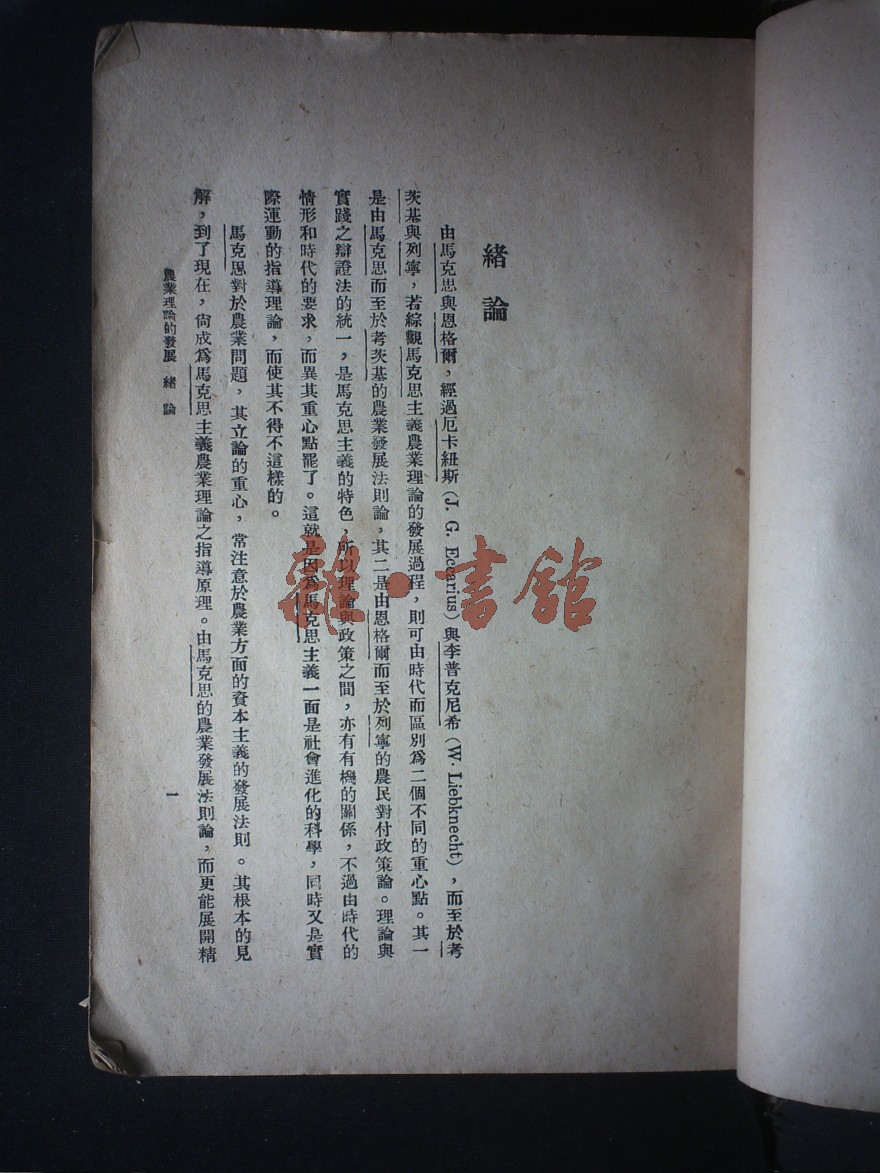 緒論
由馬克思與恩格爾，經過厄卡紐斯（J. G. Eccarius）與李普克尼希（W. Liebknecht），而至於考
茨基與列寧，若綜觀馬克思主義農業理論的發展過程，則可由時代而區別爲二個不同的重心點。其一
是由馬克思而至於考茨基的農業發展法則論，其二是由恩格爾而至於列寧的農民對付政策論。理論與
實踐之辯證法的統一，是馬克思主義的特色，所以理論與政策之間，亦有有機的關係，不過由時代的
情形和時代的要求，而異其重心點罷了。這就是因爲馬克思主義一面是社會進化的科學，同時又是實
際運動的指導理論，而使其不得不這樣的。
馬克思對於農業問題，其立論的重心，常注意於農業方面的資本主義的發展法則。其根本的見
解，到了現在，尙成爲馬克思主義農業理論之指導原理。由馬克思的農業發展法則論，而更能展開精
農業理論的發展 緒論
一
雜·書館